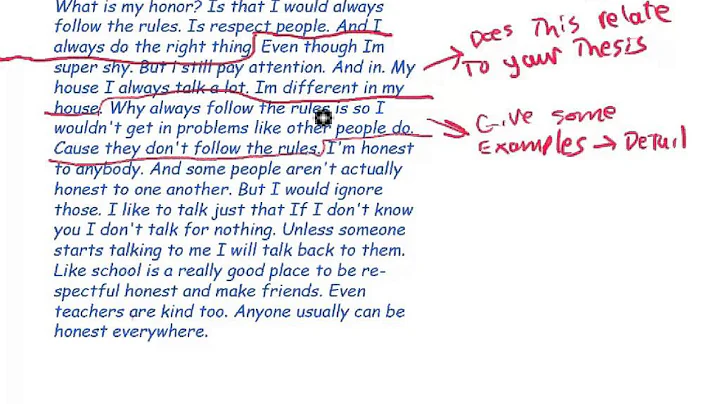 What is my honor? Is that I would always
follow the rules. Is respect people. And I
always do the right thing. Even though Im
super shy. But I still pay attention. And in. My
house I always talk a lot. Im different in my
house. Why always follow the rules is so I
wouldn't get in problems like other people do.
Cause they don't follow the rules. I'm honest
to anybody. And some people aren't actually
honest to one another. But I would ignore
those. I like to talk just that If I don't know
you I don't talk for nothing. Unless someone
starts talking to me I will talk back to them.
Like school is a really good place to be re-
spectful honest and make friends. Even
teachers are kind too. Anyone usually can be
honest everywhere.
Does This relate
To your Thesis
Give some
Examples → Detail